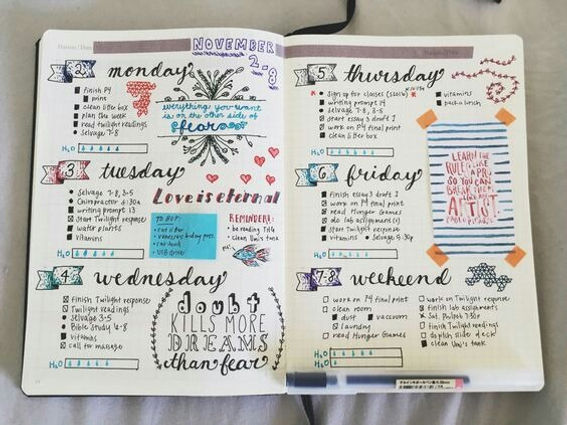 NOVEMBER
2-8
2
monday
finish P4
print
clean litter box
plan the week
read twilight readings
Selvage 7-8
everything you want
is on the other
side of
fear
3
tuesday
Selvage 7-8, 3-5
Chiropractor 6:30a
writing prompt 13
Start Twilight response
water plants
vitamins
H₂O
Love is eternal
TO BUY:
cat litter
REMINDERS:
be reading Title
clean Uni's tank
4
wednesday
finish Twilight response
Twilight readings
Selvage 3-5
Bible Study 6-8
vitamins
call for massage
H₂O
doubt
KILLS MORE
DREAMS
than fear
5
thursday
Sign up for classes
writing prompt 14
Selvage 7-8, 3-5
start essay 3 draft 1
work on P4 final print
clean litter box
vitamins
pack lunch
H₂O
6
friday
finish essay 3 draft 1
work on P4 final print
read Hunger Games
do lab assignment(s)
Start Twilight response
vitamins
Selvage
H₂O
LEARN THE
RULES LIKE
A PRO,
SO YOU CAN
BREAK THEM
LIKE AN
ARTIST.
7-8
weekend
work on P4 final print
clean room
dust
vacuum
laundry
read Hunger Games
work on Twilight response
finish lab assignments
finish Twilight readings
clean Uni's tank
H₂O
H₂O